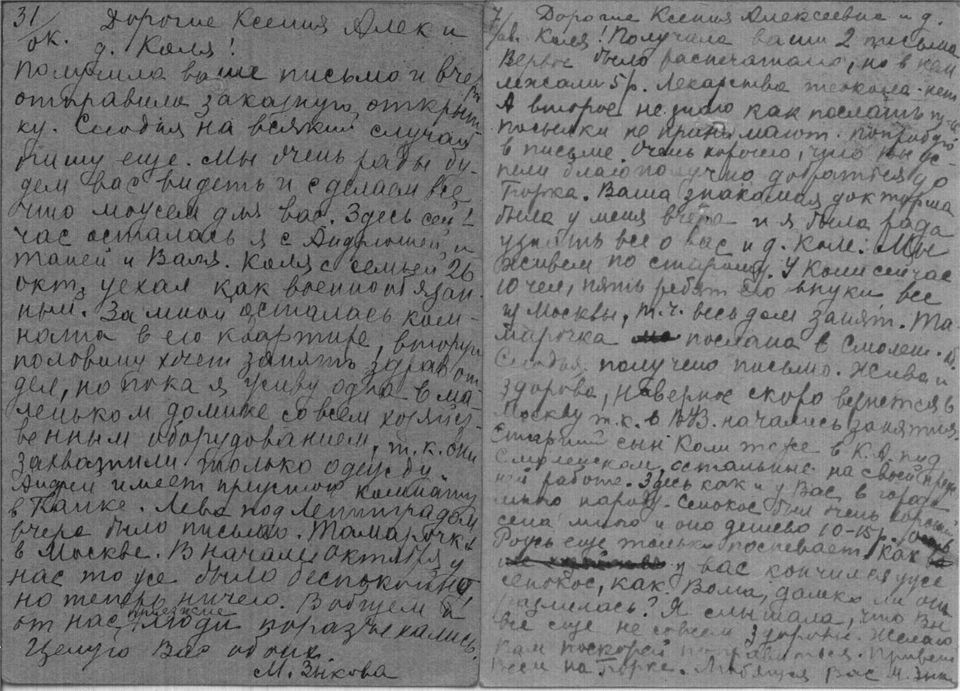 31/ок. Дорогие Ксения Алек и
д. Коля!
Получила ваше письмо и вчера
отправила заказную открыт-
ку. Сегодня на всякий случай
пишу еще. Мы очень рады бу-
дем вас видеть и сделаем все
что можем для вас. Здесь сей-
час осталась я с Андрюшей и
Таней и Валя. Коля с семьей 26
окт. уехал как военнообязан-
ным. За мной осталась ком-
ната в его квартире, вторую
половину хочет занять здравот-
дел, но пока я живу одна в ма-
леньком домике со всем хозяйст-
венным оборудованием, т.к. они
захватили только одежду.
Андрей имеет комнату
в Лева под Ленинградом
вчера было письмо. Тамарочка
в Москве. В начале октября у
нас тоже было беспокойно,
но теперь ничего. В общем
от нас приезжие люди поразъехались.
Целую Вас обоих
М. Зыкова
7/ав. Дорогие Ксения Алексеевна и д.
Коля! Получила ваши 2 письма
Первое было распечатано, но в нем
лежали 5 р. Лекарства теокола нет
А второе не знаю как послать т.к.
посылки не принимают. Попробую
в письме. Очень хорошо, что вы ус-
пели благополучно добраться до
Торжка. Ваша знакомая докторша
была у меня вчера и я была рада
узнать все о вас и д. Коле. Мы
живем по старому. У Коли сейчас
10 чел, пять ребят его внуки все
из Москвы, т.ч. весь дом занят. Та-
марочка послана в Смолен. об.
Сегодня получено письмо. Жива и
здорова, наверное скоро вернется в
Москву т.к. в ВУЗ. начались занятия.
Старший сын Коли тоже в К.А. под
Смоленском, остальные на своей преж-
ней работе. Здесь как и у Вас в городе
много народу. Сенокос был очень хороший
сена много и оно дешево 10-15 р.
Рожь еще только поспевает. Как
у вас кончился уже
сенокос, как Вома, далеко ли она
Я слышала, что Вы
все еще не совсем здоровы. Желаю
Вам поскорей поправиться. Привет
всем на Торжке. Любящая Вас М. Зык